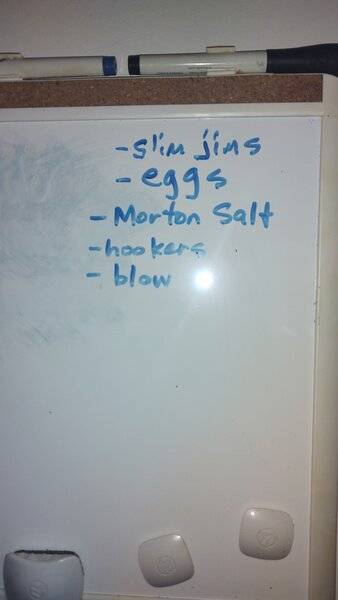 - slim jims
- eggs
- Morton Salt
- hookers
- blow